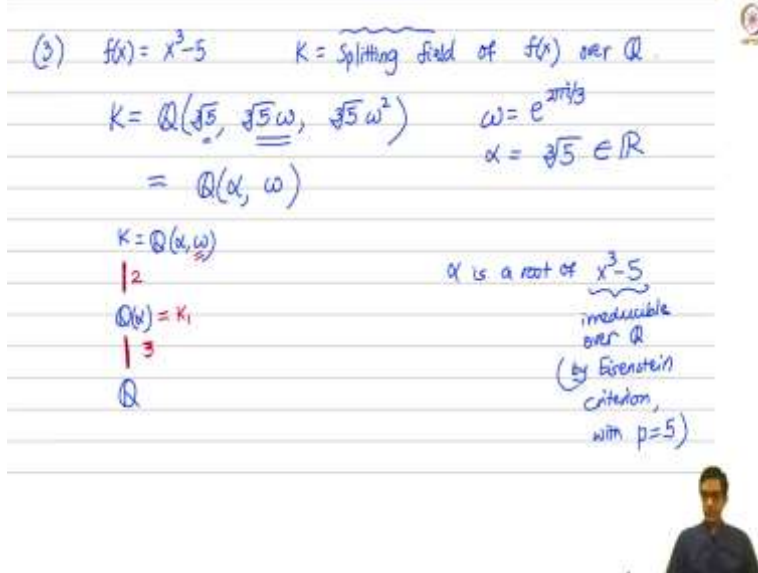 (3) f(x) = x³-5 K = Splitting field of f(x) over ℚ.
K = ℚ(∛5, ∛5ω, ∛5ω²) ω = e^{2πi/3}
= ℚ(α, ω) α = ∛5 ∈ ℝ
K = ℚ(α, ω)
2 α is a root of x³-5
ℚ(α) = K₁ irreducible
3 over ℚ
ℚ (by Eisenstein
criterion,
with p=5)